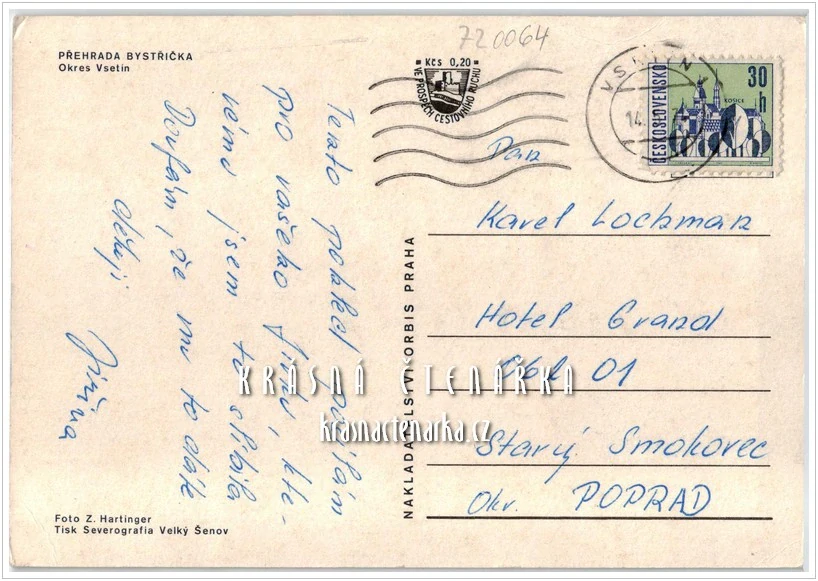 720064
PŘEHRADA BYSTŘIČKA
Okres Vsetín
Kčs 0,20
VE PROSPĚCH CESTOVNÍHO RUCHU
VS
14.
ČESKOSLOVENSKO
30
h
KOŠICE
Tento pohled posílám
pro vašeho Jirku, kte-
rému jsem to slíbila
Doufám, že mu to dáte
děkuji
Jiřina
Pan
Karel Lochman
Hotel Grand
062 01
Starý Smokovec
Okr. POPRAD
NAKLADATELSTVÍ ORBIS PRAHA
KRÁSNÁ ČTENÁŘKA
krasnactenarka.cz
Foto Z. Hartinger
Tisk Severografia Velký Šenov